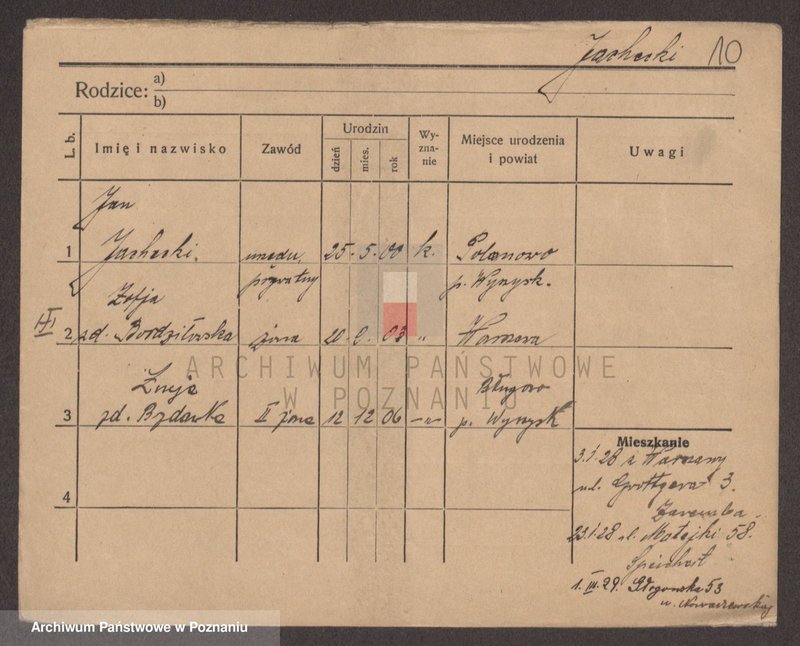 Jachecki 10
Rodzice: a)
b)
L. b. Imię i nazwisko Zawód Urodzin dzień mies. rok Wy-zna-nie Miejsce urodzenia i powiat Uwagi
Jan
1 Jachecki. 25. 5. 00 k. Polanowo
prywatny p. Wyrzysk.
Zofja
2 zd. żona 20. 2. 03 " Warszawa
3 zd. II żona 12 12 06 -"- p. Wyrzysk
4
Mieszkanie
3.1.28 z Warszawy
ul. Grottgera 3.
Zaremba
23.1.28 ul. Matejki 58.
1. III. 29. Głogowska 53
ARCHIWUM PAŃSTWOWE
W POZNANIU
Archiwum Państwowe w Poznaniu